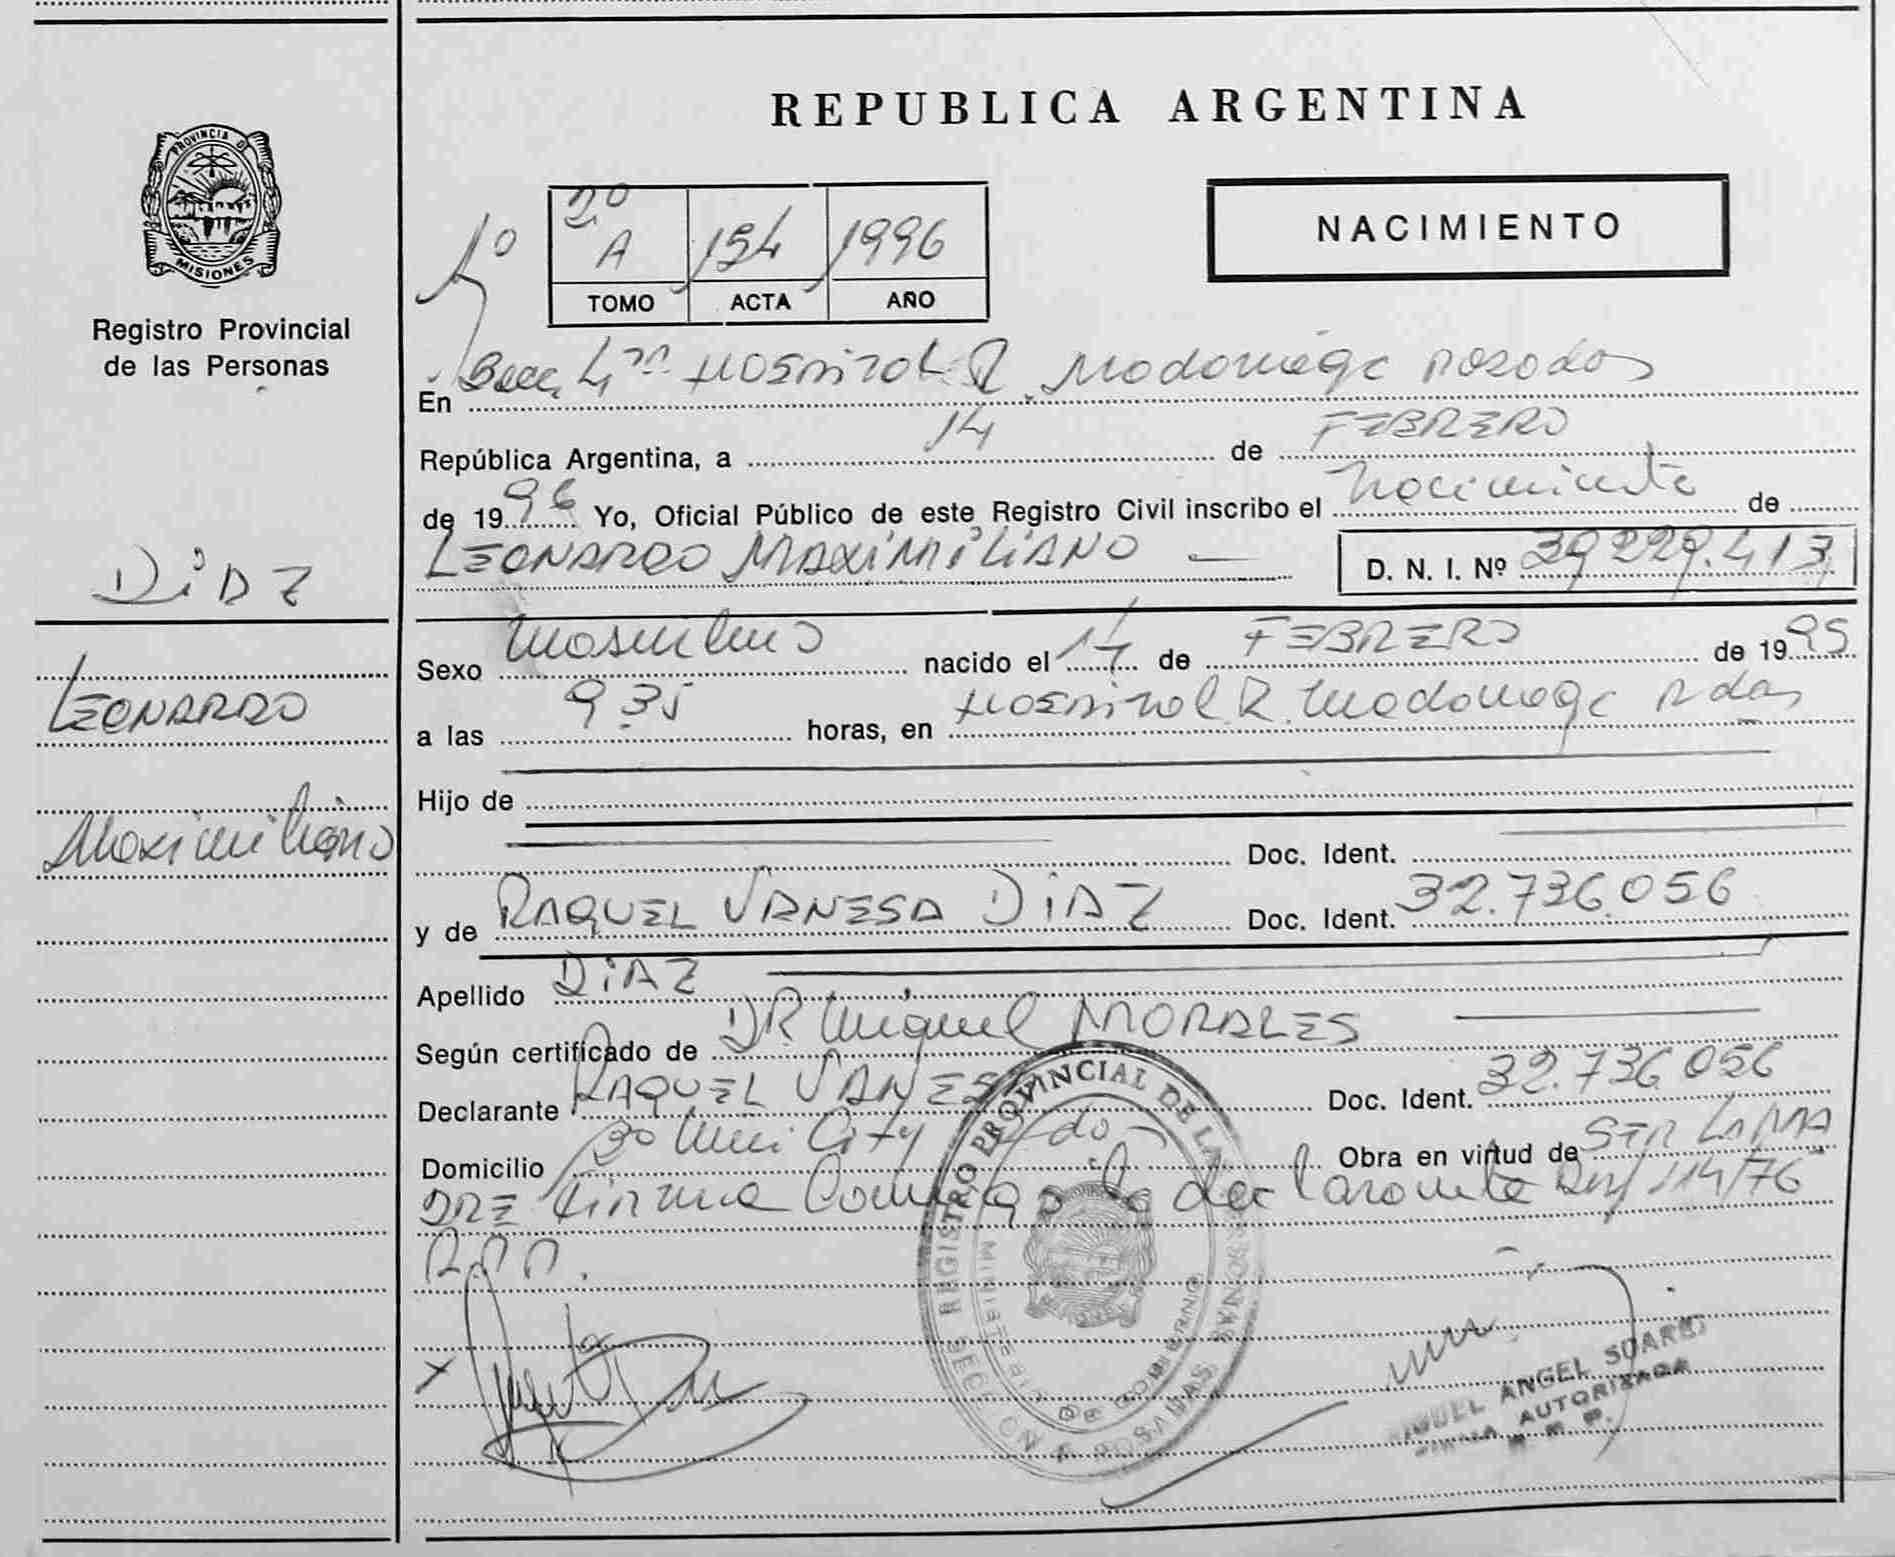 PROVINCIA DE
MISIONES
Registro Provincial
de las Personas
DiAZ
LEONARDO
Maximiliano
REPUBLICA ARGENTINA
NACIMIENTO
1º
2º
A 154 1996
TOMO ACTA AÑO
En Secc. 4ta Hospital R. Madariaga Posadas
República Argentina, a 14 de FEBRERO
de 1996 Yo, Oficial Público de este Registro Civil inscribo el Nacimiento de
LEONARDO MAXIMILIANO D. N. I. Nº 39.229.413
Sexo Masculino nacido el 14 de FEBRERO de 1995
a las 9 35 horas, en Hospital R. Madariaga Pdas
Hijo de
Doc. Ident.
y de RAQUEL VANESA DiAZ Doc. Ident. 32.736.056
Apellido DiAZ
Según certificado de DR Miguel MORALES
Declarante RAQUEL VANESA Doc. Ident. 32.736.056
Domicilio City Pdo Obra en virtud de SER LA MA
DRE Firma Conmigo la declarante 114/76
R.P.P.
REGISTRO PROVINCIAL DE LAS PERSONAS
MINISTERIO DE GOBIERNO
SECCION 4 POSADAS
MIGUEL ANGEL SUAREZ
FIRMA AUTORIZADA